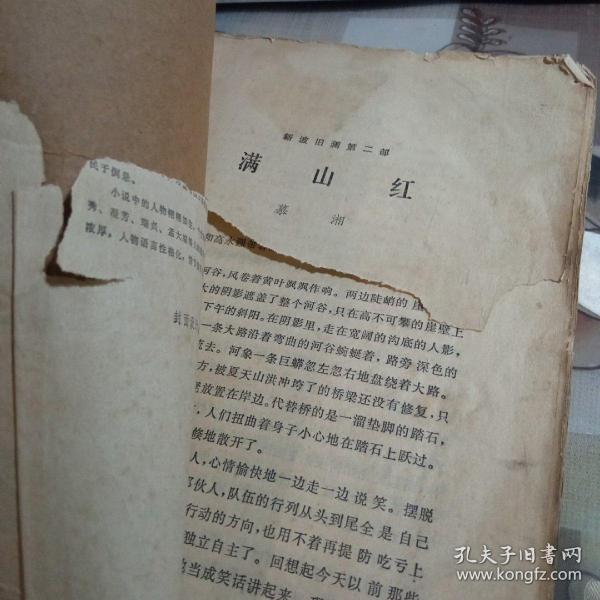 民于倒悬。
小说中的人物栩栩如生,
秀、凝芳、瑞贞、孟大
液厚,人物语言性格化,
封面
新波旧澜第二部
满山红
慕湘
河谷,风卷着黄叶飒飒作响。两边陡峭的
大的阴影遮盖了整个河谷,只在高不可攀的崖壁上
下午的斜阳。在阴影里,走在宽阔的沟底的人影,
一条大路沿着弯曲的河谷蜿蜒着,路旁深色的
流去。河象一条巨蟒忽左忽右地盘绕着大路。
方,被夏天山洪冲垮了的桥梁还没有修复,只
放置在岸边。代替桥的是一溜垫脚的踏石,
,人们扭曲着身子小心地在踏石上跃过。
倏地散开了。
人,心情愉快地一边走一边说笑。摆脱
伙人,队伍的行列从头到尾全是自己
行动的方向,也用不着再提防吃亏上
独立自主了。回想起今天以前那些
当成笑话讲起来
孔夫子旧书网
www.kongfz.com